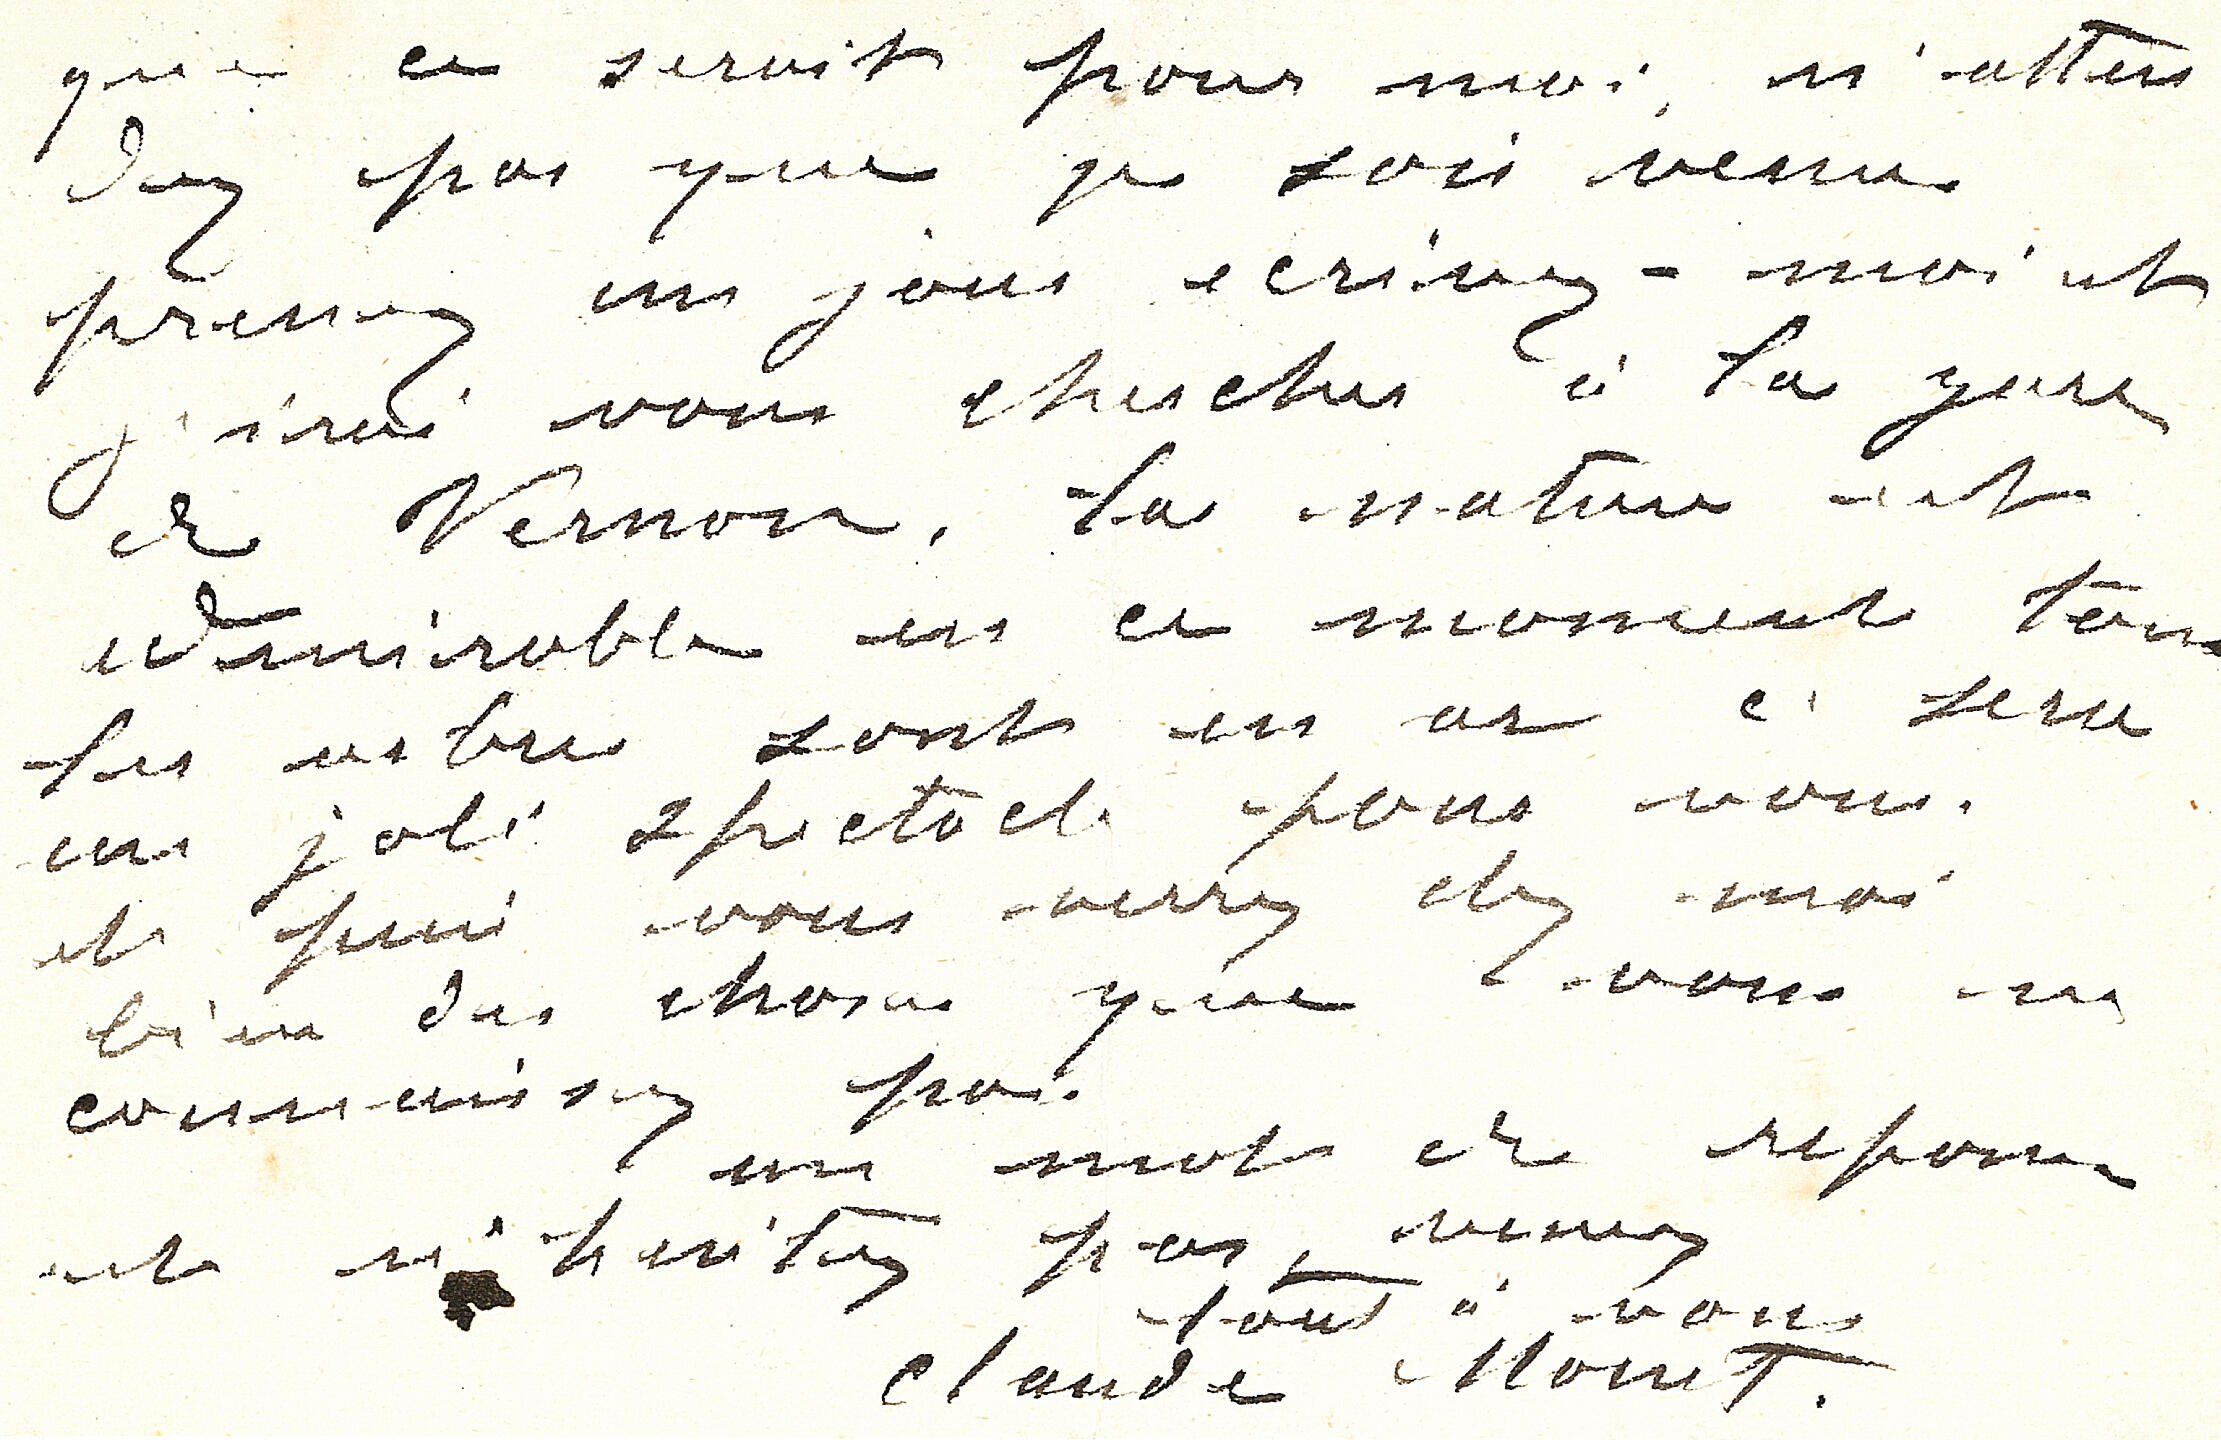 que ce serait pour moi, n'atten
dez pas que je sois venu
prenez un jour ecrivez-moi et
j'irai vous chercher à la gare
de Vernon, la nature est
admirable en ce moment tous
les arbres sont en or ce sera
un joli spectacle pour vous.
et puis vous verrez chez moi
bien des choses que vous ne
connaissez pas.
un mot de reponse
et n'hesitez pas, venez
tout à vous
Claude Monet.